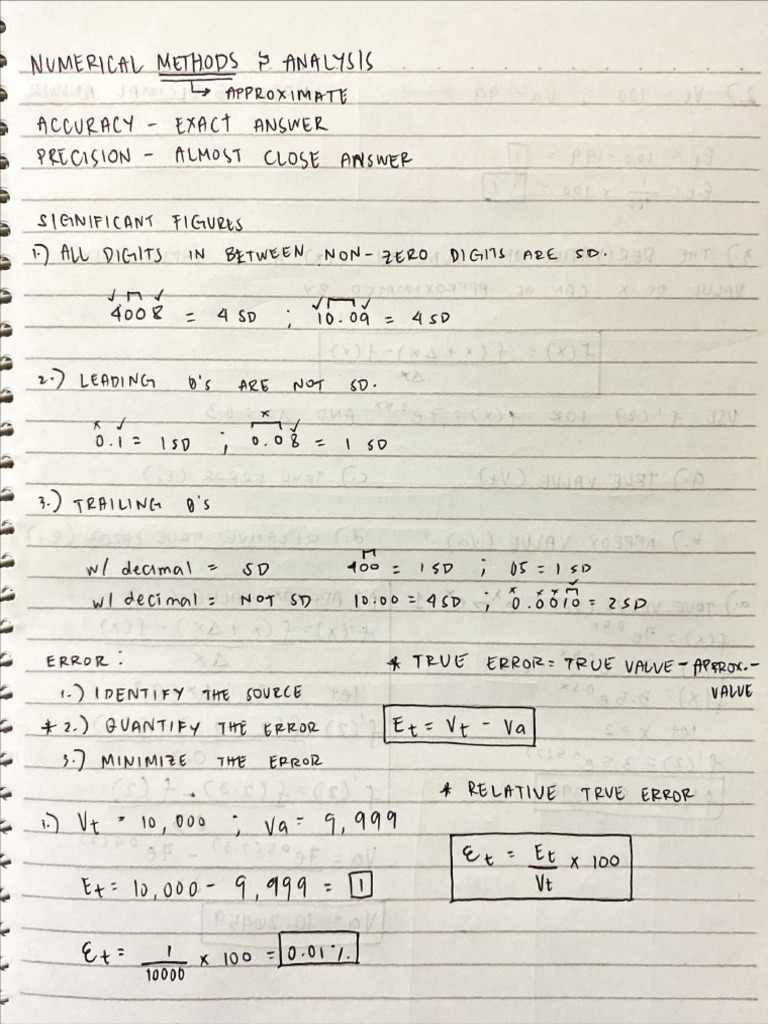 NUMERICAL METHODS & ANALYSIS
↳ APPROXIMATE
ACCURACY - EXACT ANSWER
PRECISION - ALMOST CLOSE ANSWER
SIGNIFICANT FIGURES
1.) ALL DIGITS IN BETWEEN NON-ZERO DIGITS ARE SD.
4008 = 4 SD ; 10.09 = 4 SD
2.) LEADING 0's ARE NOT SD.
0.1 = 1 SD ; 0.08 = 1 SD
3.) TRAILING 0's
w/ decimal = SD 400 = 1 SD ; 05 = 1 SD
w/ decimal = NOT SD 10.00 = 4 SD ; 0.0010 = 2 SD
ERROR : * TRUE ERROR = TRUE VALUE - APPROX.-
1.) IDENTIFY THE SOURCE VALUE
* 2.) QUANTIFY THE ERROR Et = Vt - Va
3.) MINIMIZE THE ERROR
* RELATIVE TRUE ERROR
1.) Vt = 10,000 ; Va = 9,999
Ɛt = Et/Vt × 100
Et = 10,000 - 9,999 = 1
Ɛt = 1/10000 × 100 = 0.01%